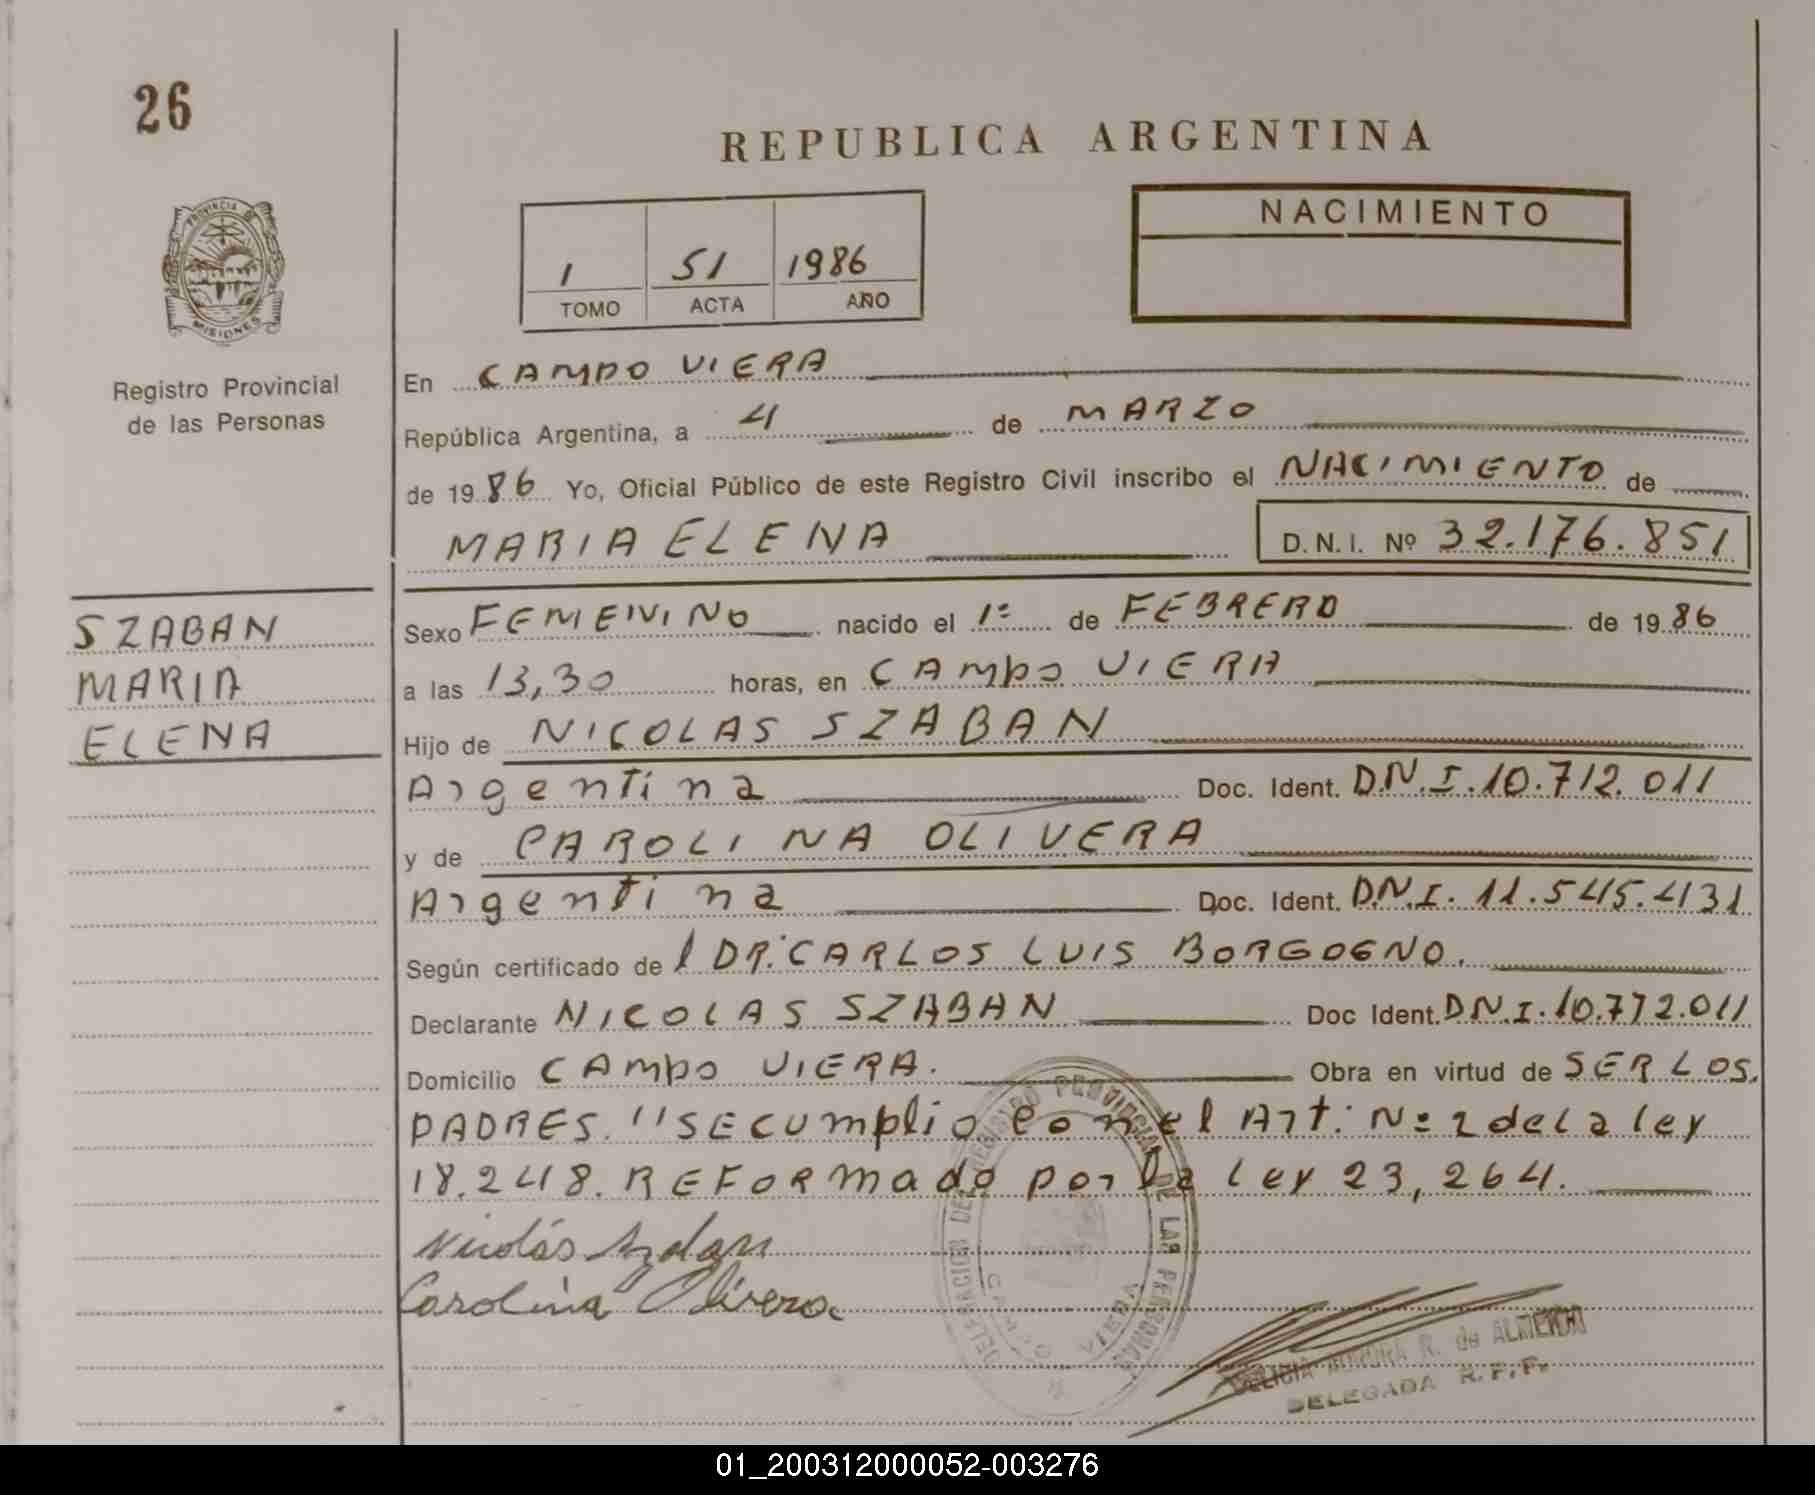 26
REPUBLICA ARGENTINA
PROVINCIA DE
MISIONES
Registro Provincial
de las Personas
1 51 1986
TOMO ACTA AÑO
NACIMIENTO
En CAMPO VIERA
República Argentina, a 4 de MARZO
de 1986 Yo, Oficial Público de este Registro Civil inscribo el NACIMIENTO de
MARIA ELENA D.N.I. Nº 32.176.851
SZABAN
MARIA
ELENA
Sexo FEMENINO nacido el 1º de FEBRERO de 1986
a las 13,30 horas, en CAMPO VIERA
Hijo de NICOLAS SZABAN
Argentina Doc. Ident. D.N.I. 10.712.011
y de CAROLINA OLIVERA
Argentina Doc. Ident. D.N.I. 11.545.431
Según certificado del DR. CARLOS LUIS BORGOGNO.
Declarante NICOLAS SZABAN Doc Ident. D.N.I. 10.772.011
Domicilio CAMPO VIERA. Obra en virtud de SER LOS
PADRES. "SE CUMPLIO con el Art: Nº 2 de la ley
18.248. REFORMADO por la ley 23,264.
Nicolás Szaban
Carolina Olivera
DELEGACION DEL REGISTRO PROVINCIAL DE LAS PERSONAS
CAMPO VIERA
R. de ALMEIDA
DELEGADA R.P.P.
01_200312000052-003276